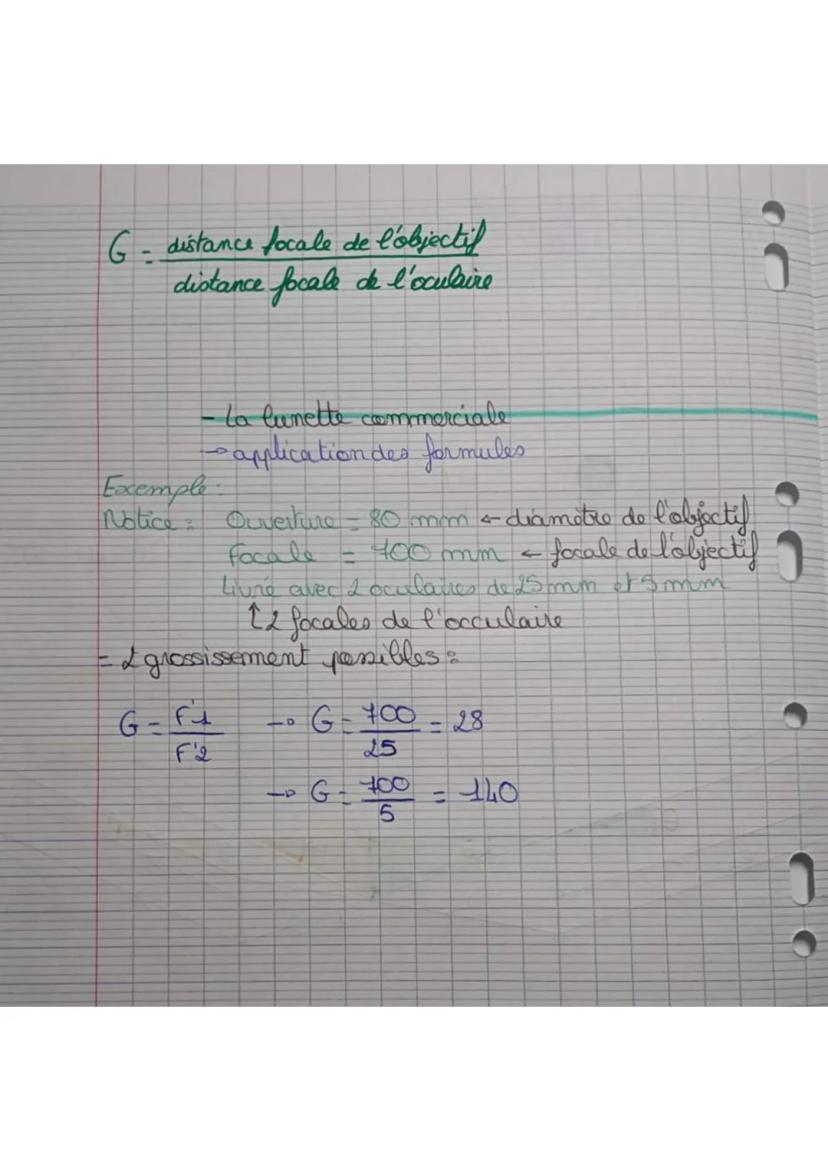 G = distance focale de l'objectif
distance focale de l'oculaire
- La lunette commerciale
→ application des formules
Exemple :
Notice : Ouverture = 80 mm ← diamètre de l'objectif
focale = 700 mm ← focale de l'objectif
Livré avec 2 oculaires de 25 mm et 5 mm
↑ 2 focales de l'occulaire
= 2 grossissement possibles :
G = F'1 / F'2 → G = 700 / 25 = 28
→ G = 700 / 5 = 140